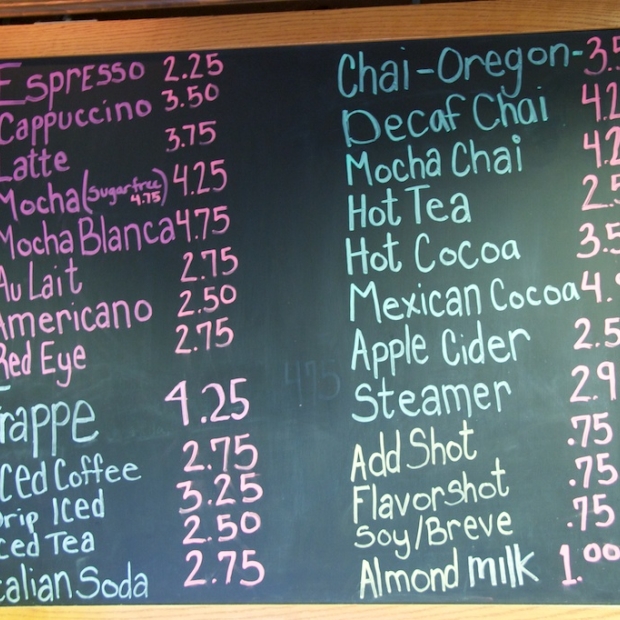 Espresso 2.25
Cappuccino 3.50
Latte 3.75
Mocha (sugarfree 4.75) 4.25
Mocha Blanca 4.75
Au Lait 2.75
Americano 2.50
Red Eye 2.75
rappe 4.25
ced Coffee 2.75
rip Iced 3.25
ced Tea 2.50
talian Soda 2.75
475
Chai-Oregon- 3.5
Decaf Chai 4.2
Mocha Chai 4.2
Hot Tea 2.5
Hot Cocoa 3.5
Mexican Cocoa 4.
Apple Cider 2.5
Steamer 2.9
Add Shot .75
Flavorshot .75
Soy/Breve .75
Almond milk 1.00